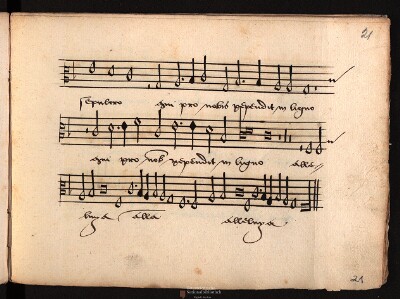 21
sepulcro qui pro nobis pependit in ligno
qui pro nob pependit in ligno alle
luya alla alleluya
21